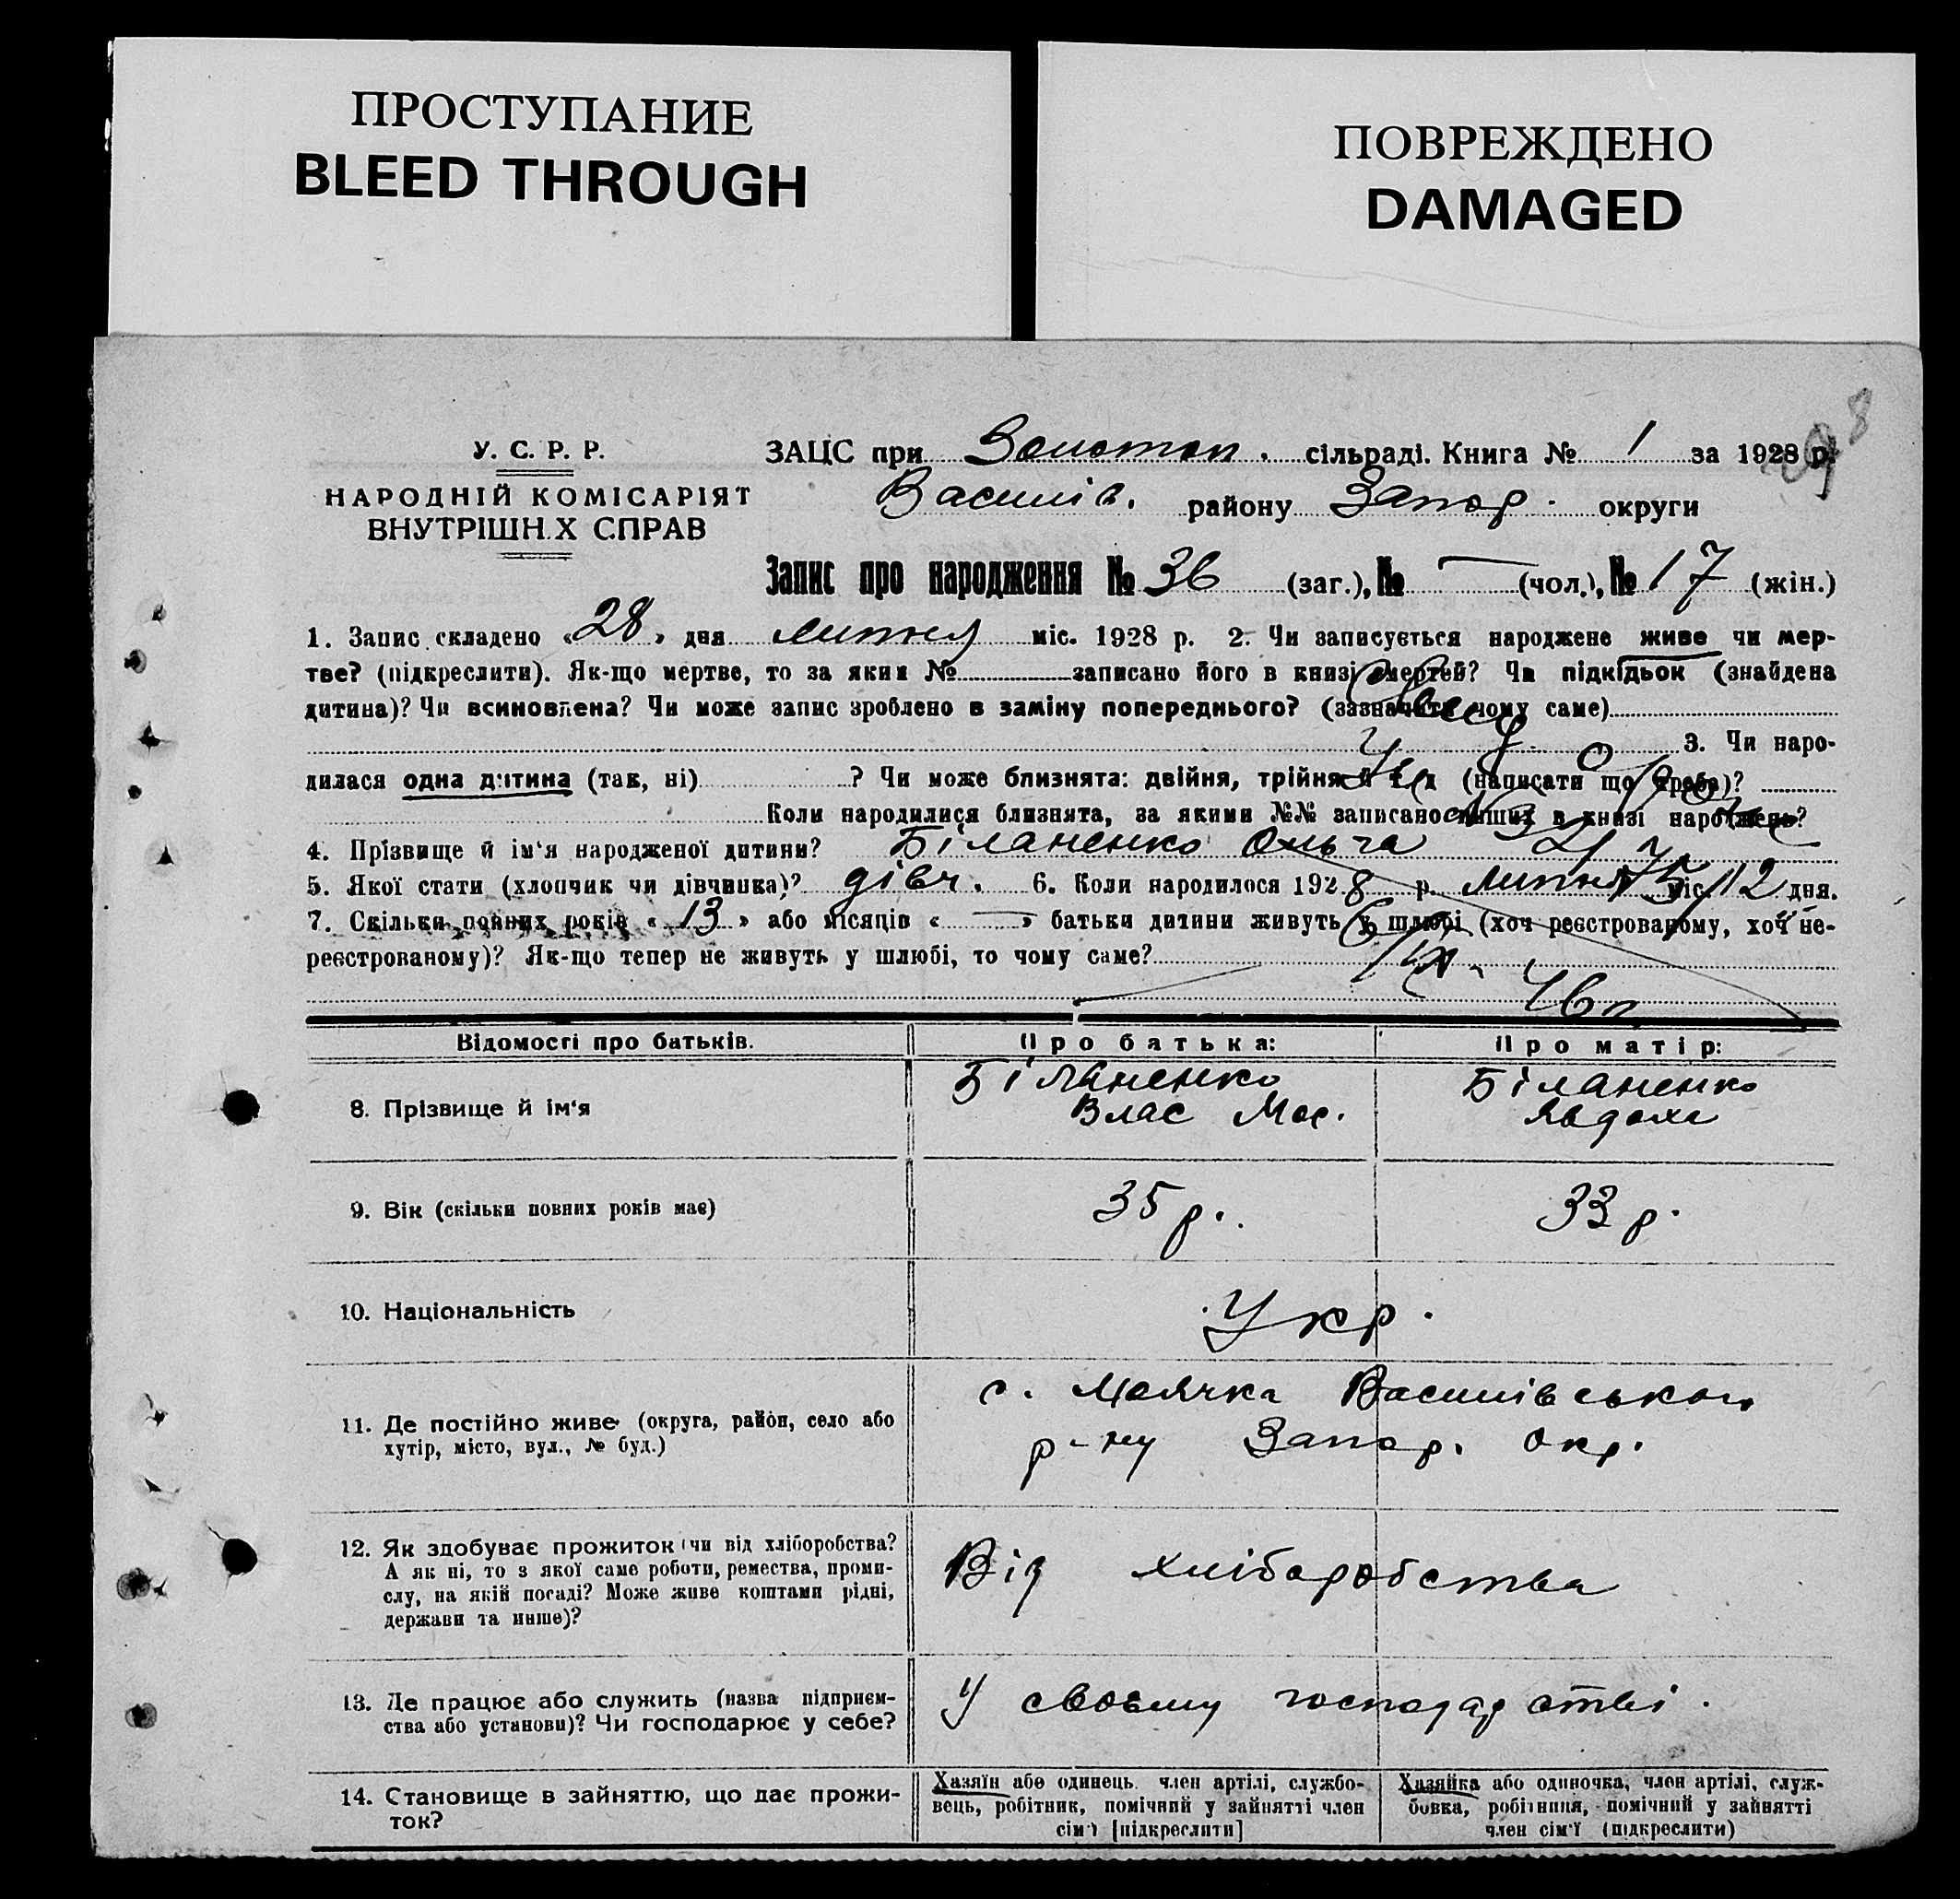 ПРОСТУПАНИЕ
BLEED THROUGH
ПОВРЕЖДЕНО
DAMAGED
У. С. Р. Р.
НАРОДНІЙ КОМІСАРІЯТ
ВНУТРІШН.Х СПРАВ
ЗАЦС при сільраді. Книга № 1 за 1928 р.
Василів. району Запор. округи
Запис про народження № 36 (заг.), № — (чол.), № 17 (жін.)
1. Запис складено «28» дня липня міс. 1928 р. 2. Чи записується народжене живе чи мер-
тве? (підкреслити). Як-що мертве, то за яким № записано його в книзі смертей? Чи підкідьок (знайдена
дитина)? Чи всиновлена? Чи може запис зроблено в заміну попереднього? (зазначити чому саме)
3. Чи наро-
дилася одна дитина (так, ні) ? Чи може близнята: двійня, трійня й т. д (написати що треба)?
Коли народилися близнята, за якими №№ записано инших в книзі народжень?
4. Прізвище й ім'я народженої дитини? Біланенко Ольга
5. Якої стати (хлопчик чи дівчинка)? дівч. 6. Коли народилося 1928 р. липня міс. 12 дня.
7. Скільки повних років «13» або місяців «—» батьки дитини живуть у шлюбі (хоч реєстрованому, хоч не-
реєстрованому)? Як-що тепер не живуть у шлюбі, то чому саме?
Відомості про батьків.
Про батька:
Про матір:
8. Прізвище й ім'я
Біланенко
Влас
Біланенко
Явдоха
9. Вік (скільки повних років має)
35 р.
33 р.
10. Національність
Укр.
11. Де постійно живе (округа, район, село або
хутір, місто, вул., № буд.)
с. Маячка Василівського
р-ну Запор. окр.
12. Як здобуває прожиток (чи від хліборобства?
А як ні, то з якої саме роботи, ремества, проми-
слу, на якій посаді? Може живе коштами рідні,
держави та инше)?
Від хліборобства
13. Де працює або служить (назва підприєм-
ства або установи)? Чи господарює у себе?
У своєму господарстві.
14. Становище в зайняттю, що дає прожи-
ток?
Хазяїн або одинець, член артілі, службо-
вець, робітник, помічний у зайнятті член
сім'ї [підкреслити]
Хазяйка або одиночка, член артілі, служ-
бовка, робітниця, помічний у зайнятті
член сім'ї (підкреслити)